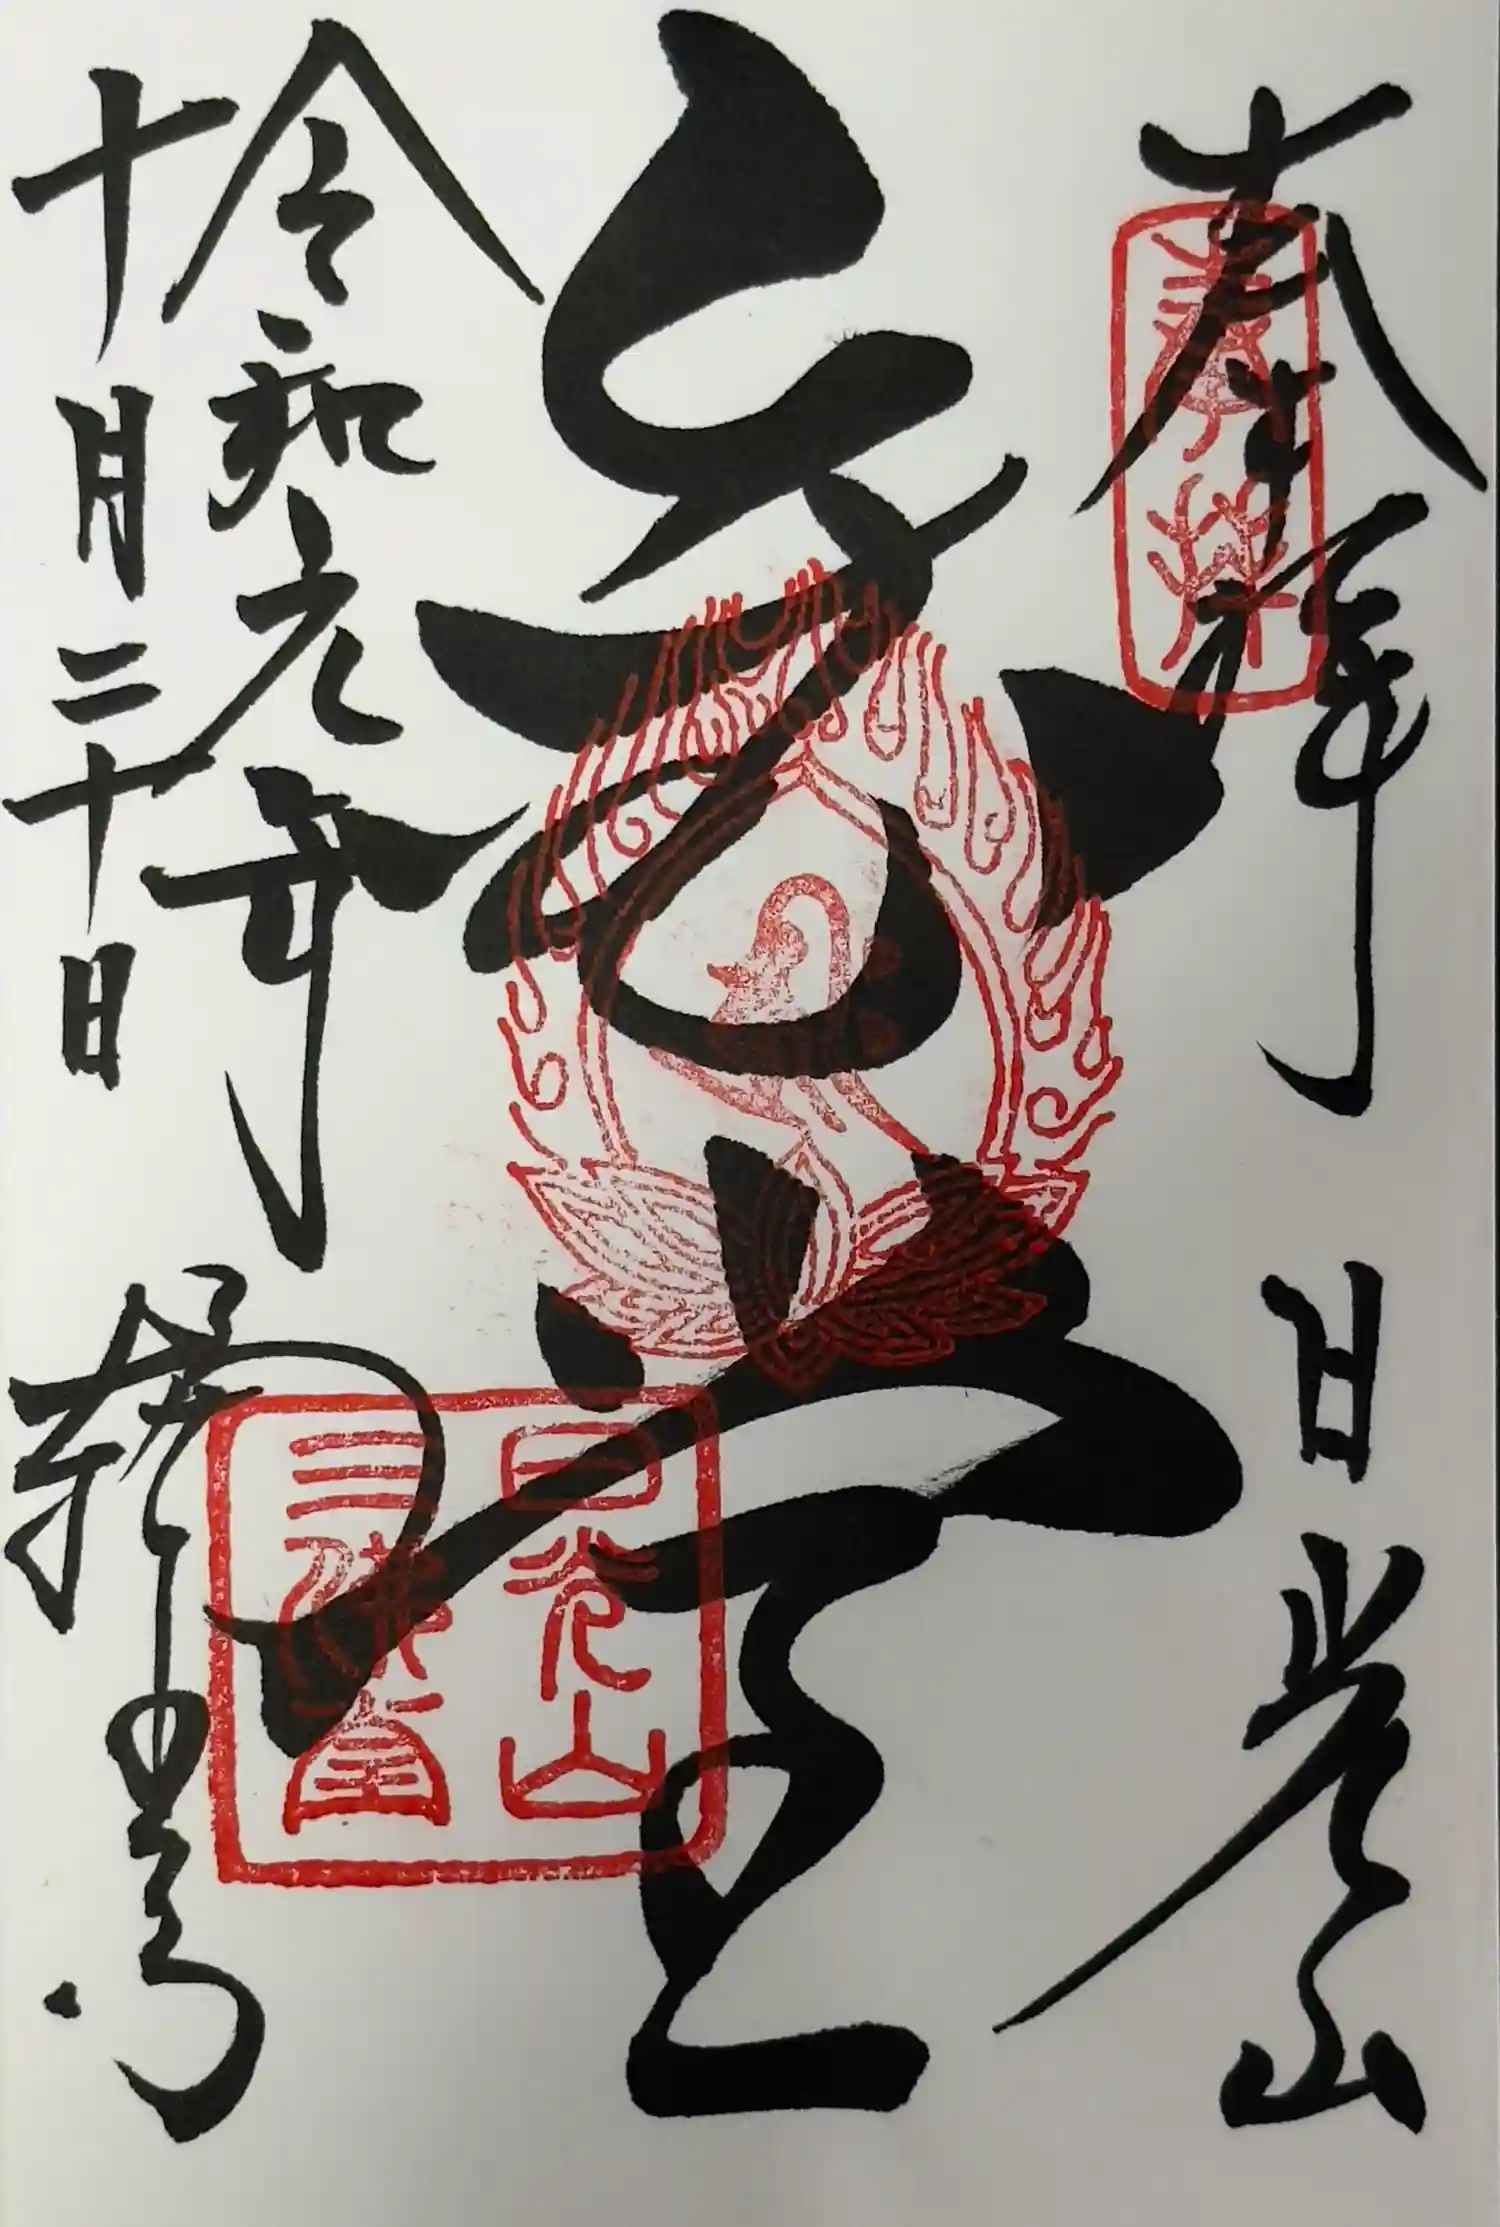 奉拝 日光山
金堂
令和元年
十月二十日 輪王寺
奉拝
日光山
三佛堂